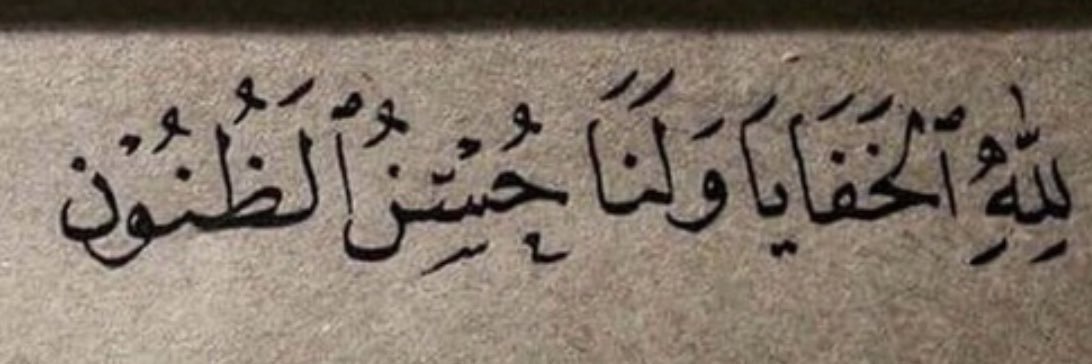 لِلَّهِ ٱلْخَفَايَا وَلَنَا حُسْنُ ٱلظُّنُوْن